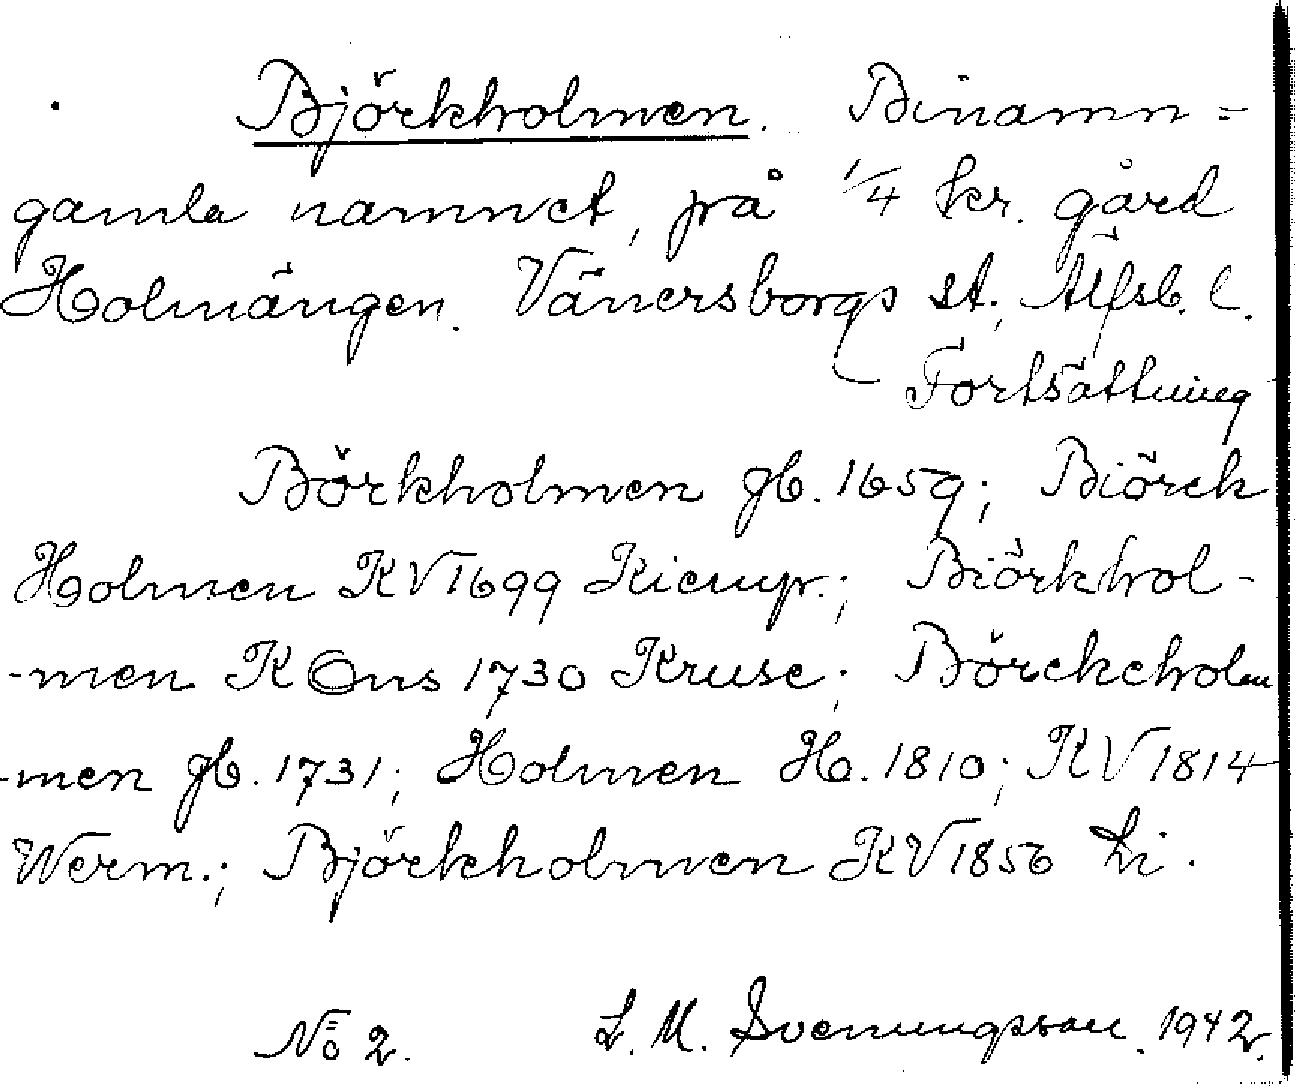 Björkholmen. Binamn =
gamla namnet, på 1/4 kr. gård
Holmängen. Vänersborgs st., Älfsb. l.
Fortsättning
Börkholmen jb. 1659; Biörck
Holmen KV 1699 Kiemp.; Biörkhol-
-men K Öns 1730 Kruse; Börckehol
-men jb. 1731; Holmen H. 1810; KV 1814
Werm.; Björkholmen KV 1856 Li.
No 2. L. M. Svenungsson. 1942.